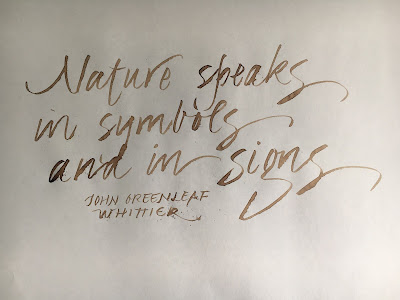 Nature speaks
in symbols
and in signs
JOHN GREENLEAF
WHITTIER